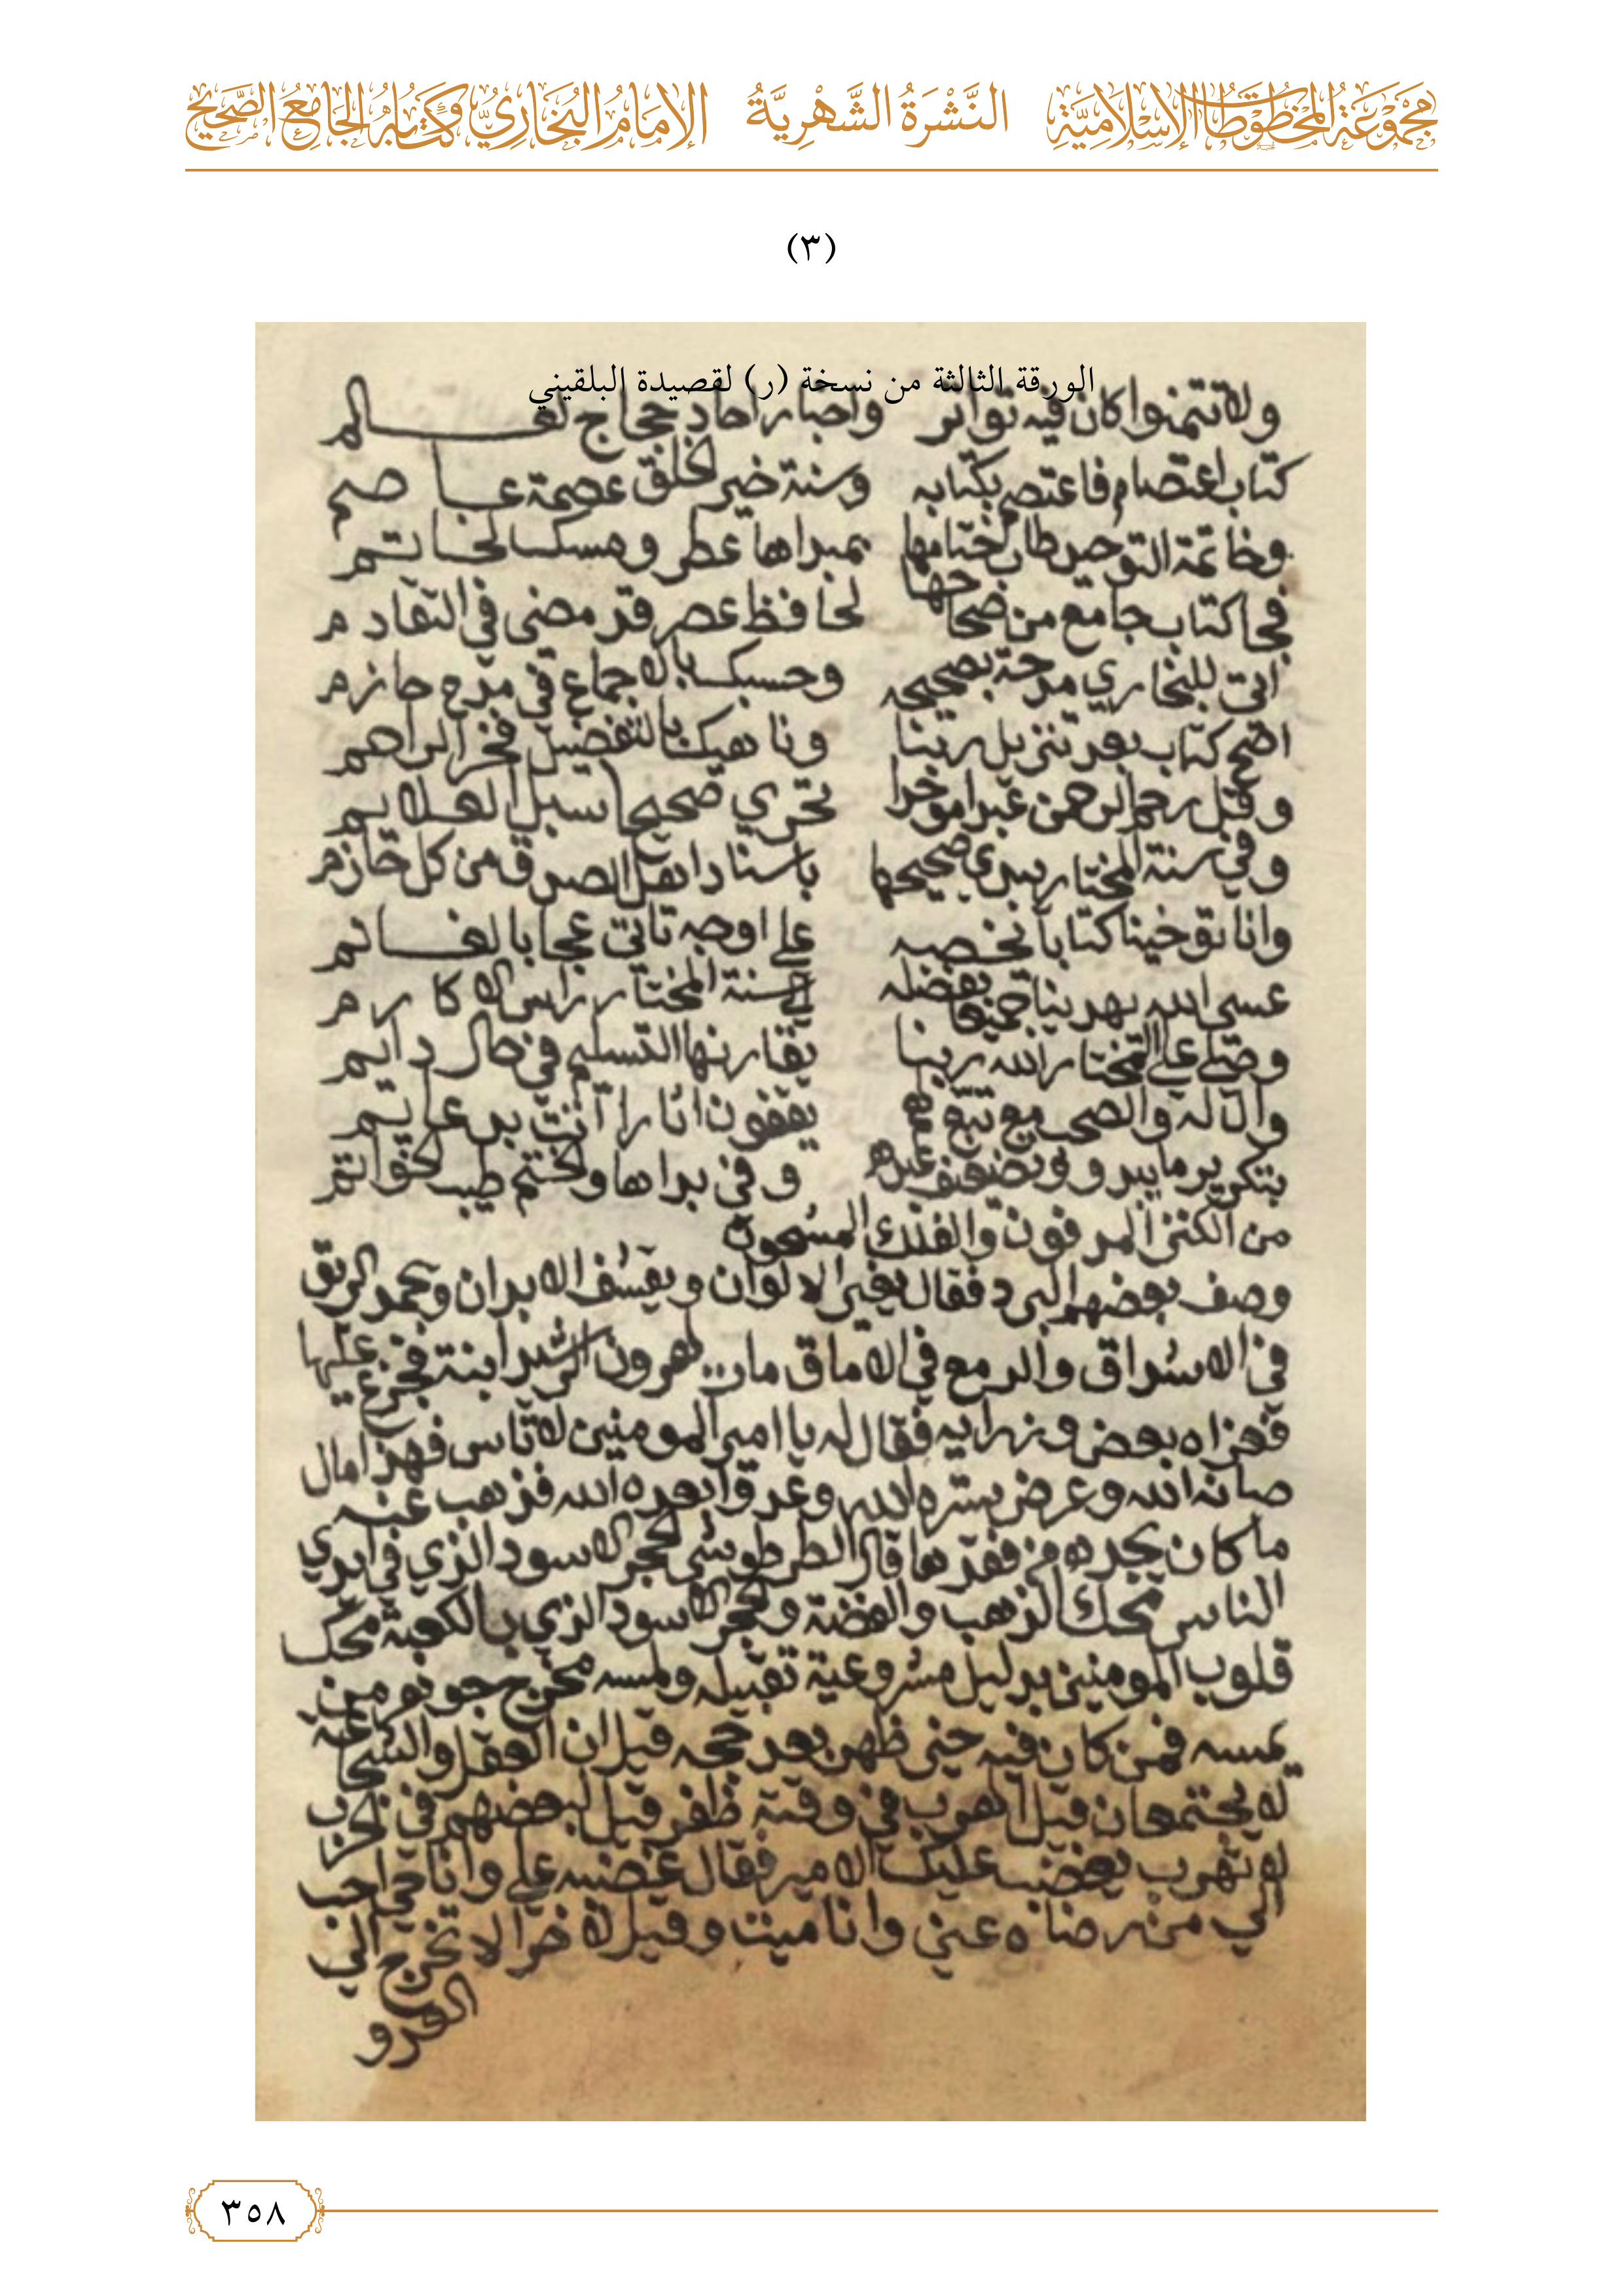 مَجْمُوعَةُ المَخْطُوطَاتِ الإِسْلَامِيَّةِ النَّشْرَةُ الشَّهْرِيَّةُ الإِمَامُ البُخَارِيُّ وَكِتَابُهُ الجَامِعُ الصَّحِيحُ
(٣)
الورقة الثالثة من نسخة (ر) لقصيدة البلقيني
ولا تتمنوا كان فيه تواتر واخبار احاد حجاج لعالم
كتاب اعتصام فاعتصم بكتابه وسنة خير الخلق عصمة عاصم
وخاتمة التوحيد طاب ختامها بمبداها عطر ومسك لخاتم
فجا كتاب جامع من صحاحها لحافظ عصر قد مضى في التقادم
اتى للبخاري مدحة بصحيحه وحسبك بالاجماع في مدح حازم
اصح كتاب بعد تنزيل ربنا وناهيك بالتفضيل فخر الراحم
وقل رحم الرحمن عبدا موخدا تحرى صحيحا سبل العلايم
وفي سنة المختار يبدي صحيحها باسناد اهل الصدق من كل حازم
وانا توخينا كتابا نخصه على اوجه تاتي عجابا لغانم
عسى الله يهدينا جميعا بفضله لسنة المختار راس الاكارم
وصلى على المختار الله ربنا يقارنها التسليم في حال دايم
وال له والصحب مع تبع هم يقفون اثارا اتت بدعايم
بتكرير ما يبدو وتضعيف عده وفي بداها والختم طيب الخواتم
من الكنز المدفون والفلك المشحون
وصف بعضهم البرد فقال يغير الالوان ويقشف الابدان ويجمد الريق
في الاشداق والدمع في الاماق مات لهرون الرشيد ابنة فجزع عليها
فعزاه بعض وزرايه فقال له يا امير المومنين لا تاس فهذا مال
صانه الله وعرض ستره الله وعدو ابعده الله فذهب عنه
ما كان يجده من فقدها قال الطرطوشي الحجر الاسود الذي في ايدي
الناس محك الذهب والفضة والحجر الاسود الذي بالكعبة محك
قلوب المومنين بدليل مشروعية تقبيله ولمسه مخرج جوهر من
يمسه فمن كان فيه حنى ظهر بعد حجه قيل ان العقل والشجاعة
لا يجتمعان قيل الهرب في وقته ظفر قيل لبعضهم في الحرب
لا تهرب يغضب عليك الامير فقال غضبه علي وانا حي احب
الي من رضاه عني وانا ميت وقيل لاخر الا تخرج الى
العدو
٣٥٨